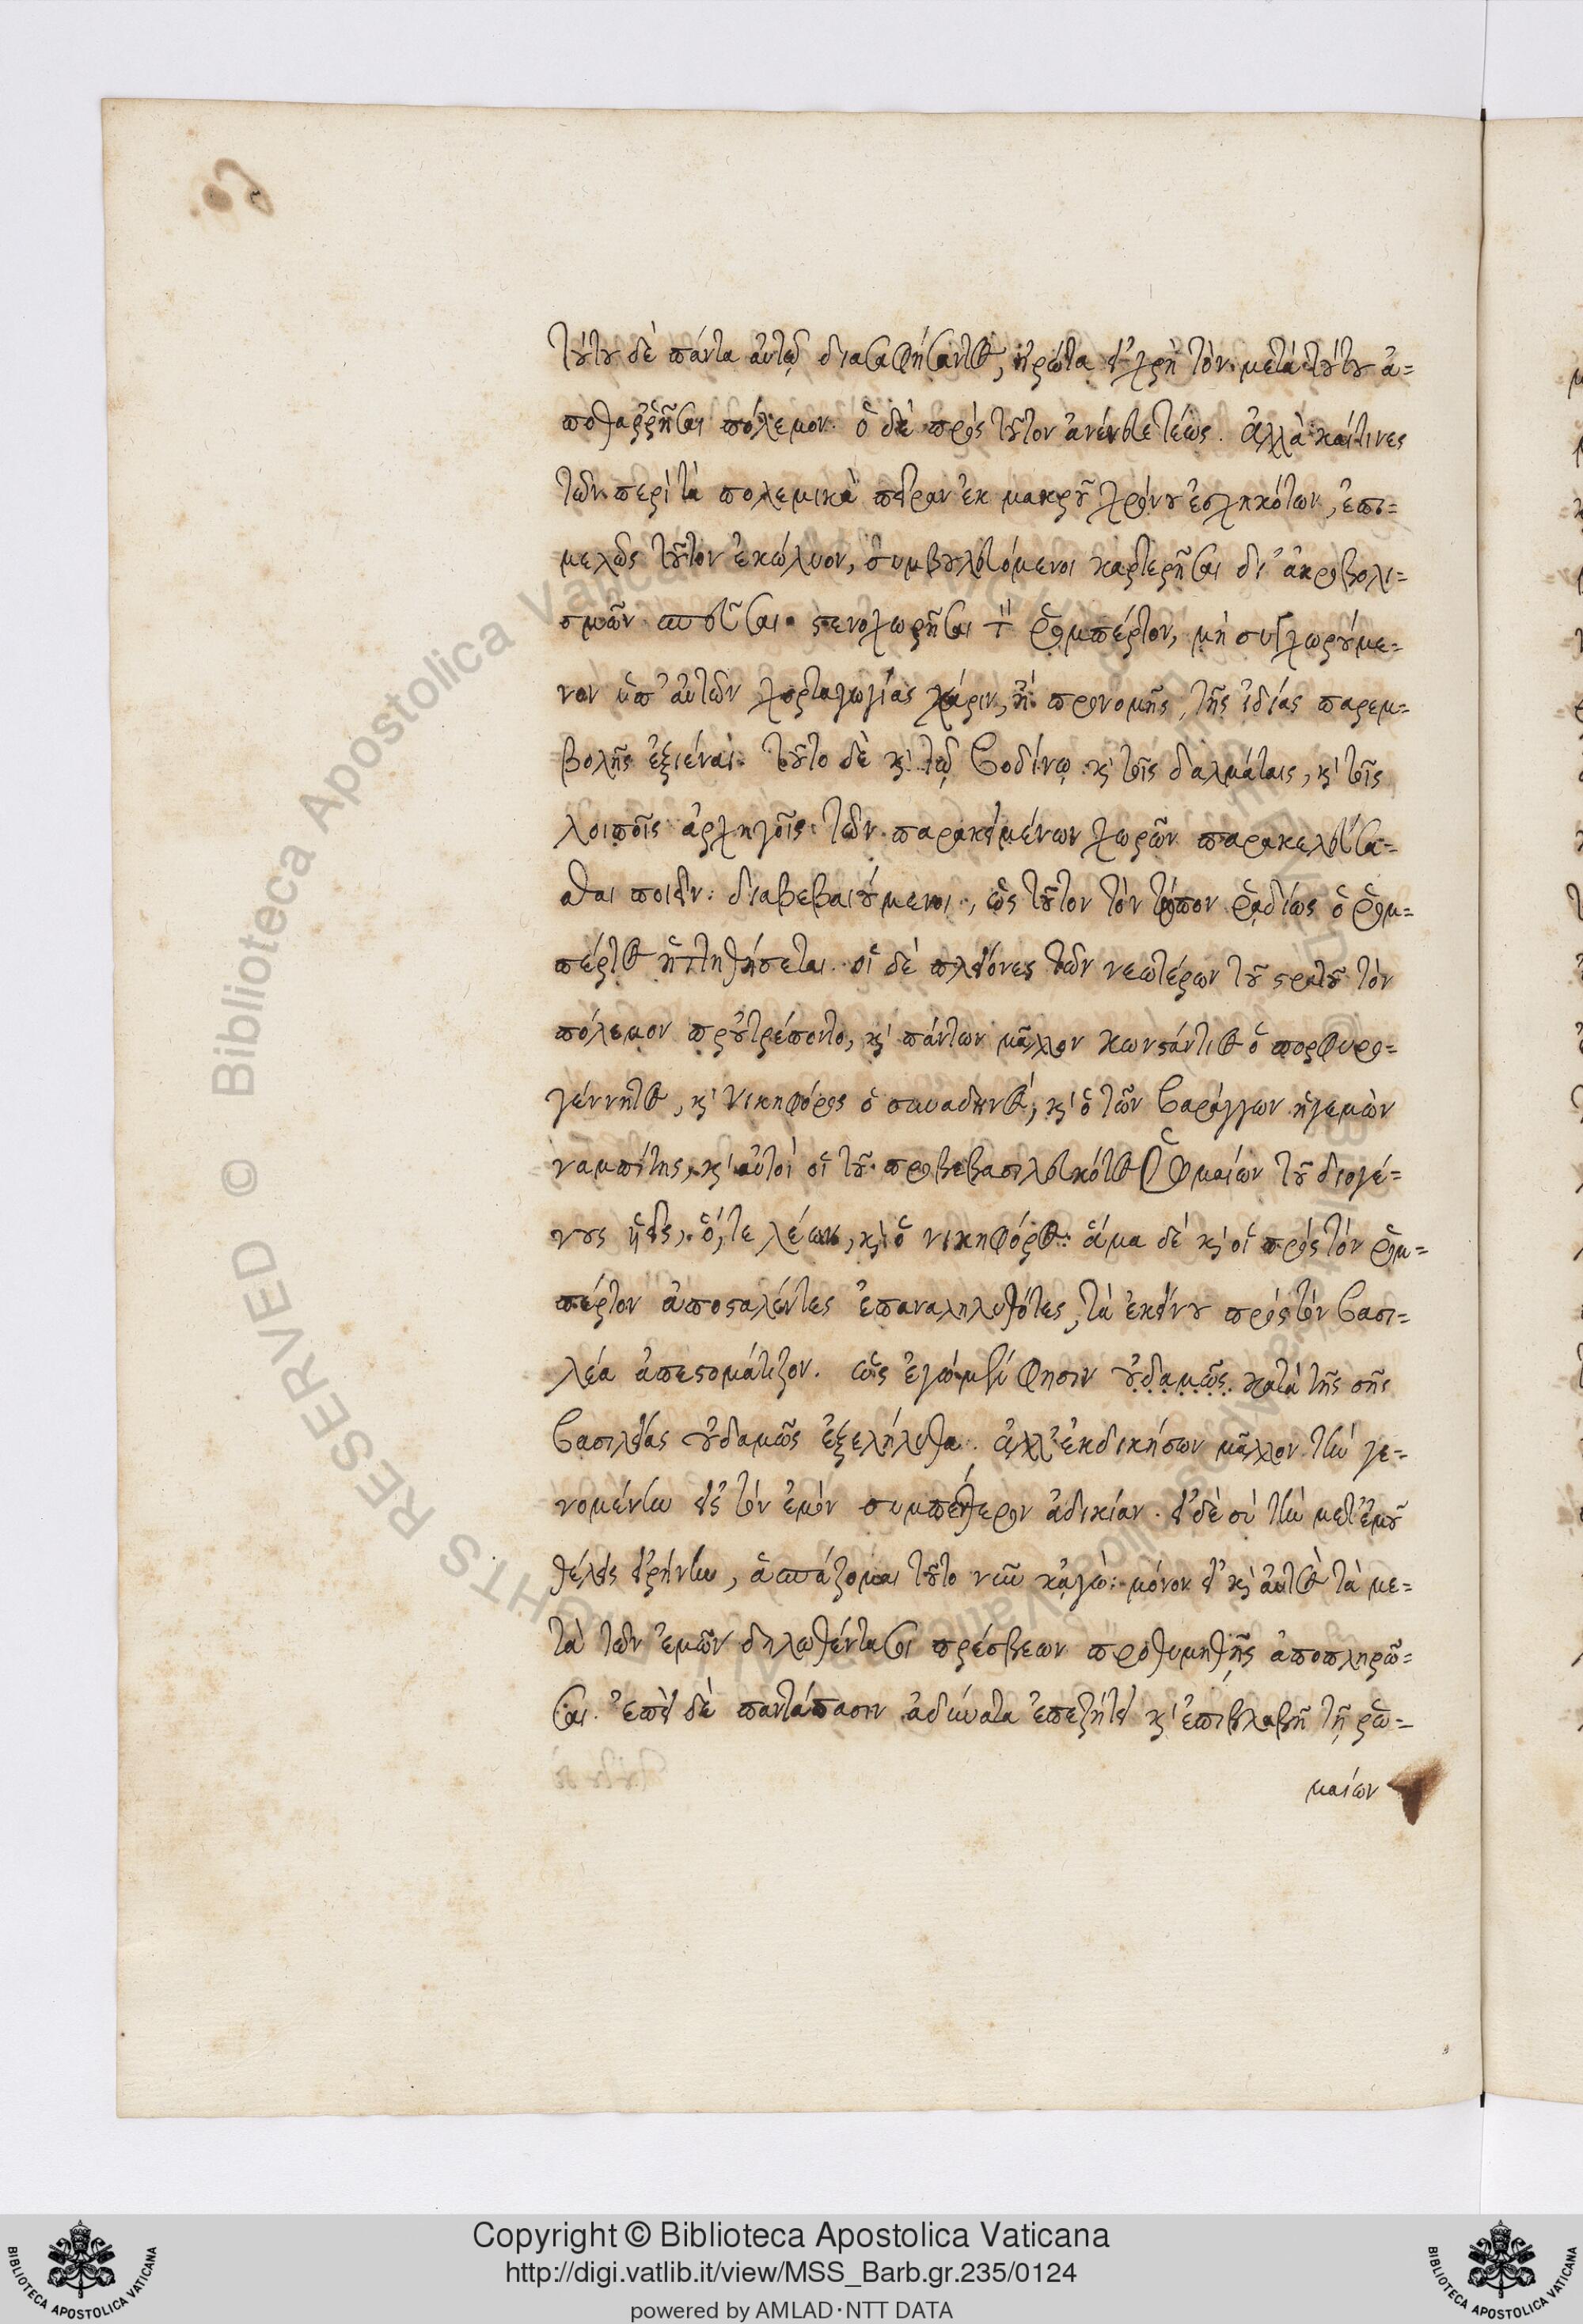 τούτου δὲ πάντα αὐτῷ διασαφήσαντος, ἠρώτα εἰ χρὴ τὸν μετὰ τούτου ἀ=
ποθαρρῆσαι πόλεμον. ὁ δὲ πρὸς τοῦτον ἀνένευε τέως. ἀλλὰ καί τινες
τῶν περὶ τὰ πολεμικὰ πεῖραν ἐκ μακροῦ χρόνου ἐσχηκότων, ἐπι=
μελῶς τοῦτον ἐκώλυον, συμβουλευόμενοι καρτερῆσαι δι' ἀκροβολι=
σμῶν σπεῦσαι στενοχωρῆσαι τ ῥομπέρτον, μὴ συγχωρούμε=
νον ὑπ' αὐτῶν χορταγωγίας χάριν, ἢ προνομῆς, τῆς ἰδίας παρεμ=
βολῆς ἐξιέναι. τοῦτο δὲ κ' τῷ βοδίνῳ κ' τοῖς δαλμάταις, κ' τοῖς
λοιποῖς ἀρχηγοῖς τῶν παρακειμένων χωρῶν παρακελεύσα=
σθαι ποιεῖν. διαβεβαιούμενοι, ὡς τοῦτον τὸν τρόπον ῥᾳδίως ὁ ῥομ=
πέρτος ἡττηθήσεται. οἱ δὲ πλείονες τῶν νεωτέρων τοῦ στρατοῦ τὸν
πόλεμον προὐτρέποντο, κ' πάντων μᾶλλον κωνστάντιος ὁ πορφυρο=
γέννητος, κ' νικηφόρος ὁ συναδηνός, κ' ὁ τῶν βαράγγων ἡγεμὼν
ναμπίτης, κ' αὐτοὶ οἱ τοῦ προβεβασιλευκότος Ῥωμαίων τοῦ διογέ=
νους ὑεῖς, ὅ,τε λέων, κ' ὁ νικηφόρος. ἅμα δὲ κ' οἱ πρὸς τὸν ῥομ=
πέρτον ἀποσταλέντες ἐπαναληλυθότες, τὰ ἐκείνου πρὸς τὸν βασι=
λέα ἀπεστομάτιζον. ὡς ἐγὼ μὲν φησιν οὐδαμῶς κατὰ τῆς σῆς
βασιλείας οὐδαμῶς ἐξελήλυθα. ἀλλ' ἐκδικήσων μᾶλλον τὴν γε=
νομένην εἰς τὸν ἐμὸν συμπένθερον ἀδικίαν. εἰ δὲ σὺ τὴν μετ' ἐμοῦ
θέλεις εἰρήνην, ἀσπάζομαι τοῦτο νῦν κἀγὼ. μόνον εἰ κ' αὐτὸς τὰ με=
τὰ τῶν ἐμῶν δηλωθέντα σοι πρέσβεων προθυμηθῇς ἀποπληρῶ=
σαι. ἐπεὶ δὲ παντάπασιν ἀδύνατα ἐπεζήτει κ' ἐπιβλαβῆ τῇ ῥω=
μαίων
Copyright © Biblioteca Apostolica Vaticana
http://digi.vatlib.it/view/MSS_Barb.gr.235/0124
powered by AMLAD·NTT DATA